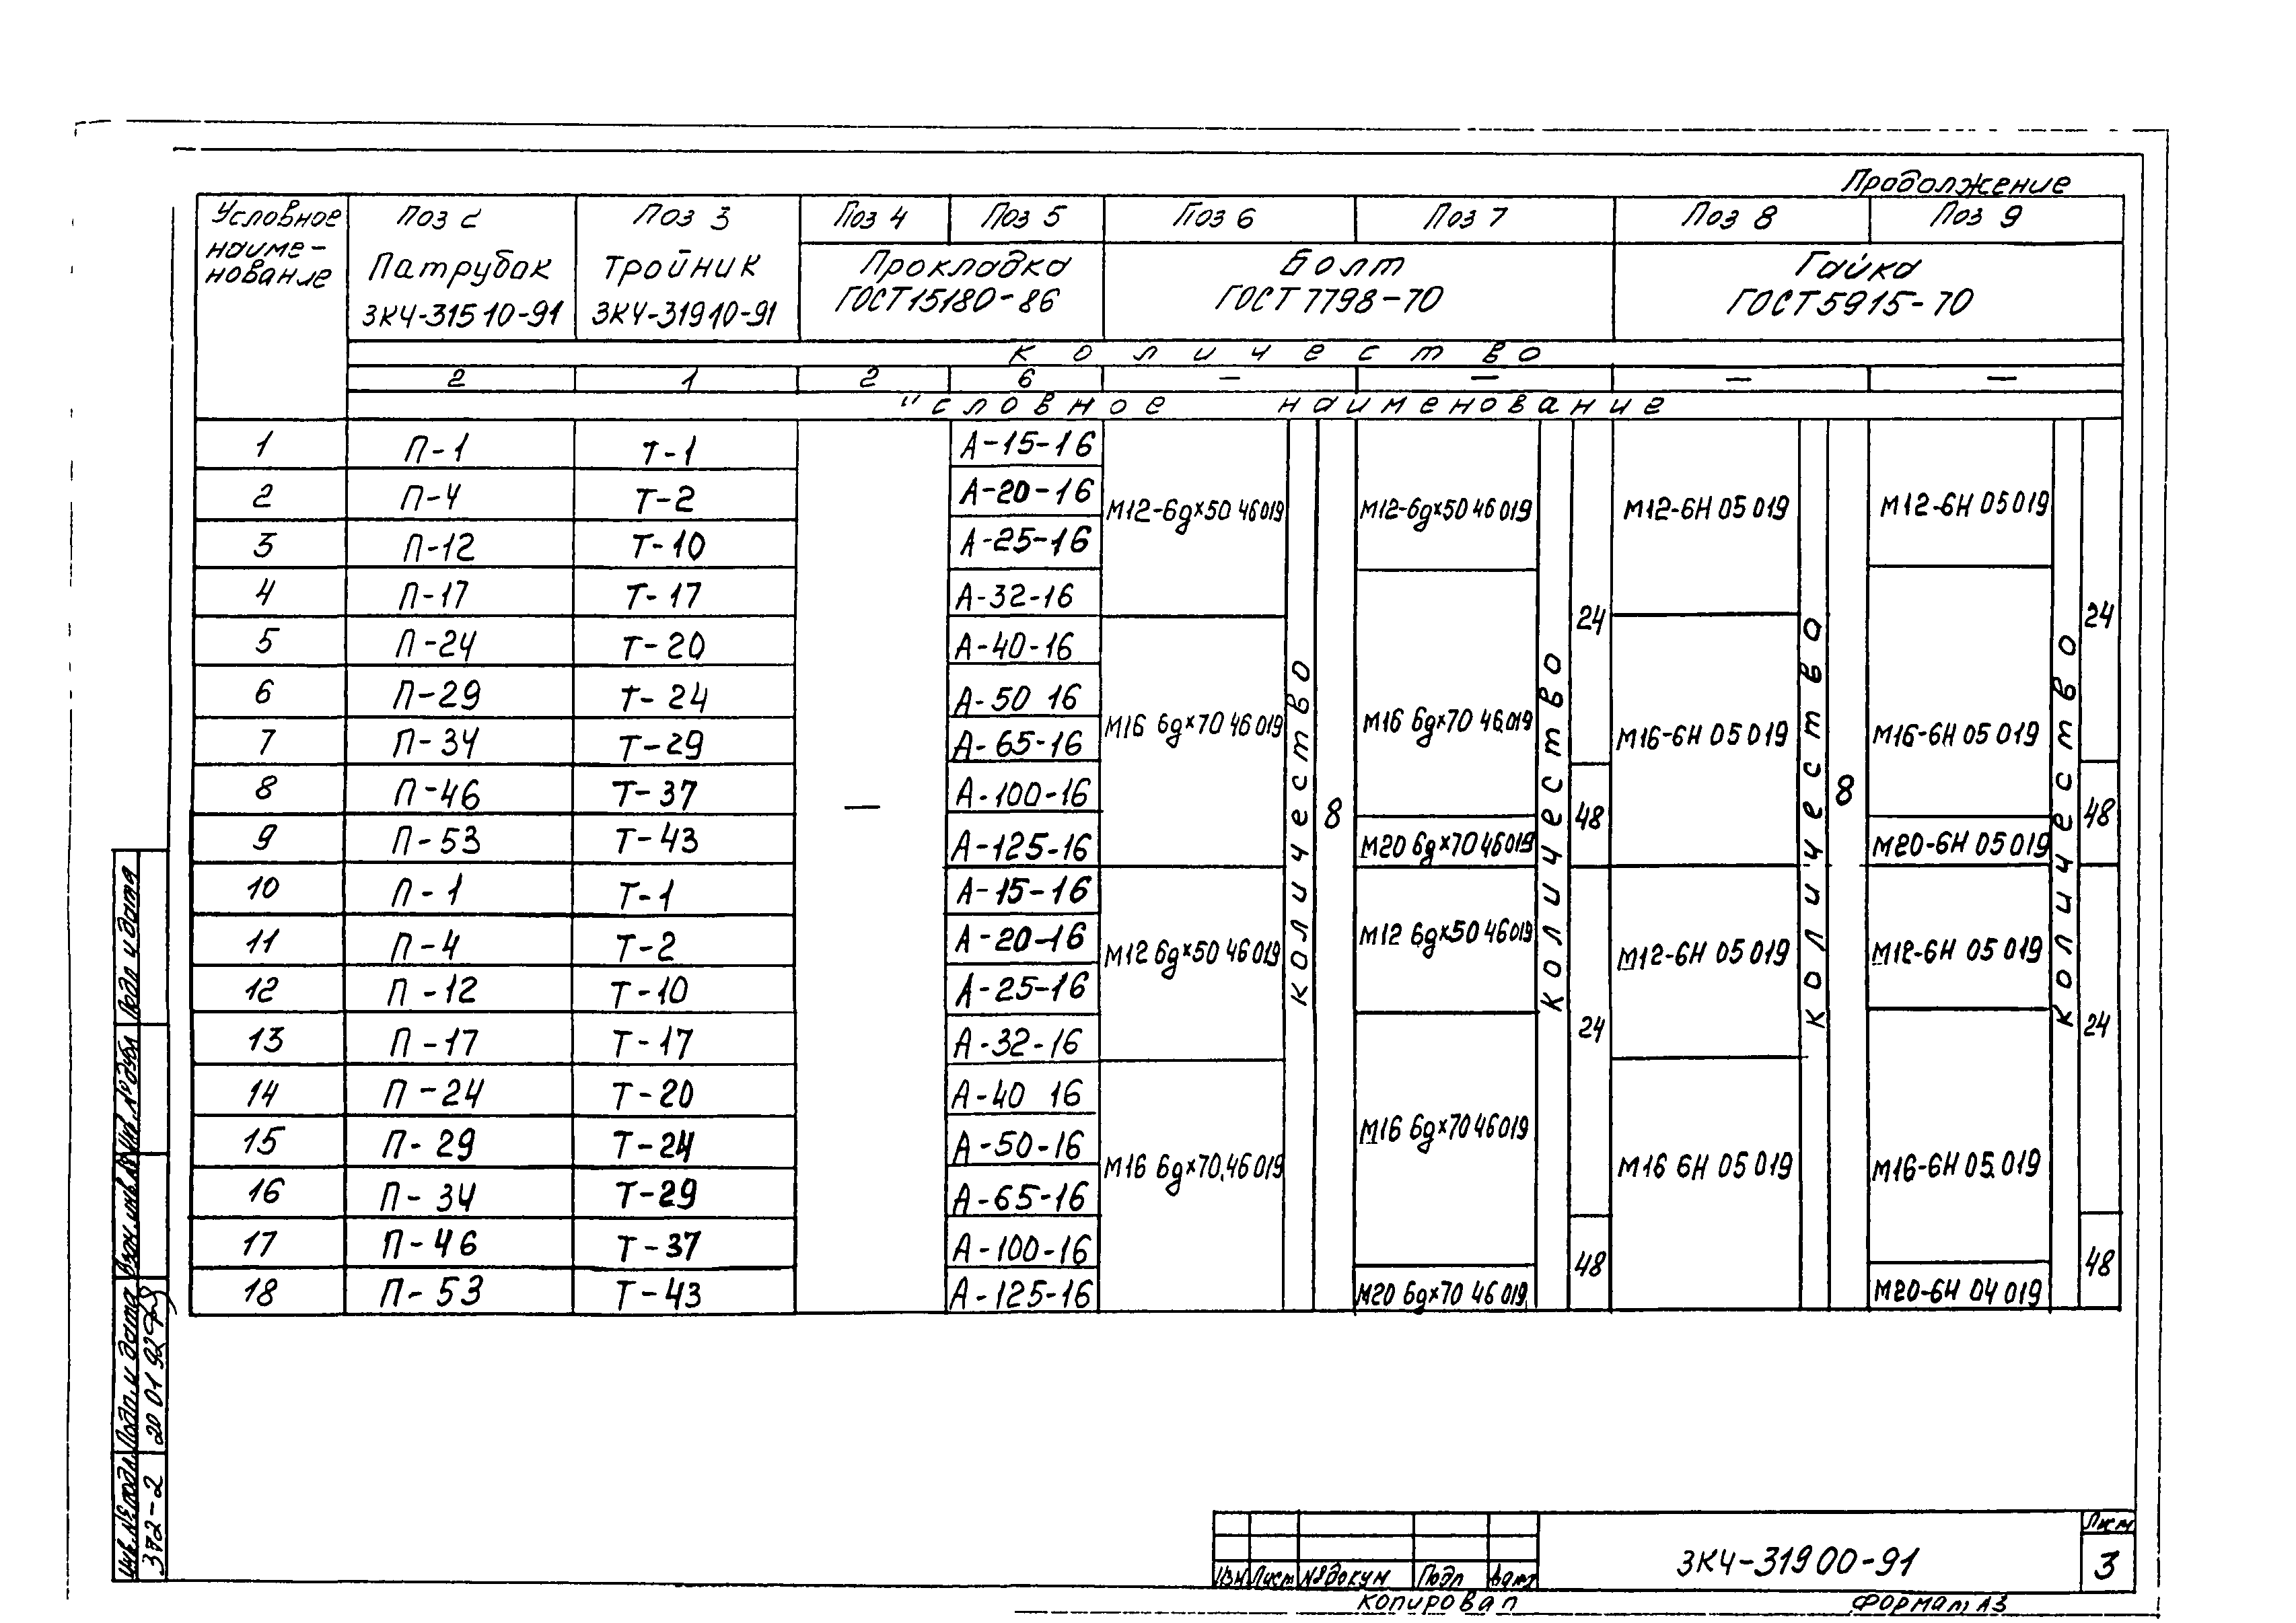 Продолжение
Условное наиме-нование Поз 2 Поз 3 Поз 4 Поз 5 Поз 6 Поз 7 Поз 8 Поз 9
Патрубок Тройник Прокладка Болт Гайка
ЗК4-31510-91 ЗК4-31910-91 ГОСТ 15180-86 ГОСТ 7798-70 ГОСТ 5915-70
количество
2 1 2 6 — — — —
условное наименование
1 П-1 Т-1 А-15-16
2 П-4 Т-2 А-20-16 М12-6g×50 46 019 М12-6g×50 46 019 М12-6Н 05 019 М12-6Н 05 019
3 П-12 Т-10 А-25-16
4 П-17 Т-17 А-32-16 24 24
5 П-24 Т-20 А-40-16
6 П-29 Т-24 А-50 16 М16 6g×70 46 019 количество М16 6g×70 46.019 количество количество количество
7 П-34 Т-29 А-65-16 М16-6Н 05 019 М16-6Н 05 019
8 П-46 Т-37 — А-100-16 8 48 8 48
9 П-53 Т-43 А-125-16 М20 6g×70 46 019 М20-6Н 05 019
10 П-1 Т-1 А-15-16
11 П-4 Т-2 А-20-16 М12 6g×50 46 019 М12 6g×50 46 019 М12-6Н 05 019 М12-6Н 05 019
12 П-12 Т-10 А-25-16
13 П-17 Т-17 А-32-16 24 24
14 П-24 Т-20 А-40 16
15 П-29 Т-24 А-50-16 М16 6g×70 46 019
16 П-34 Т-29 А-65-16 М16 6g×70.46 019 М16 6Н 05 019 М16-6Н 05.019
17 П-46 Т-37 А-100-16 48 48
18 П-53 Т-43 А-125-16 М20 6g×70 46 019 М20-6Н 04 019
Подп и дата
Инв. № дубл
Взам. инв. №
Подп. и дата 20 01 92
Инв. № подл. 372-2
Изм Лист № докум Подп Дата
ЗК4-319 00-91
Лист
3
Копировал Формат А3